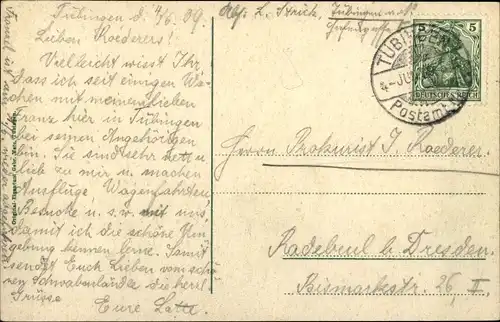 Tübingen d. 4/6.09.
Lieben Roederers!
Vielleicht wisst Ihr,
dass ich seit einigen Wo-
chen mit meinem lieben
Franz hier in Tübingen
bei seinen Angehörigen
bin. Sie sind sehr nett u.
lieb zu mir u. machen
Ausflüge Wagenfahrten
Besuche u. s. w. mit uns,
damit ich die schöne Um
gebung kennen lerne. Somit
sendet Euch Lieben vom schö
nen Schwabenlande die herzl.
Grüsse
Eure Lotte.
Abs: L. Tübingen
TÜBINGEN
4-JUN
Postamt
5
DEUTSCHES REICH
Herrn Prokurist J. Roederer.
Radebeul b. Dresden.
Bismarckstr. 26, II.